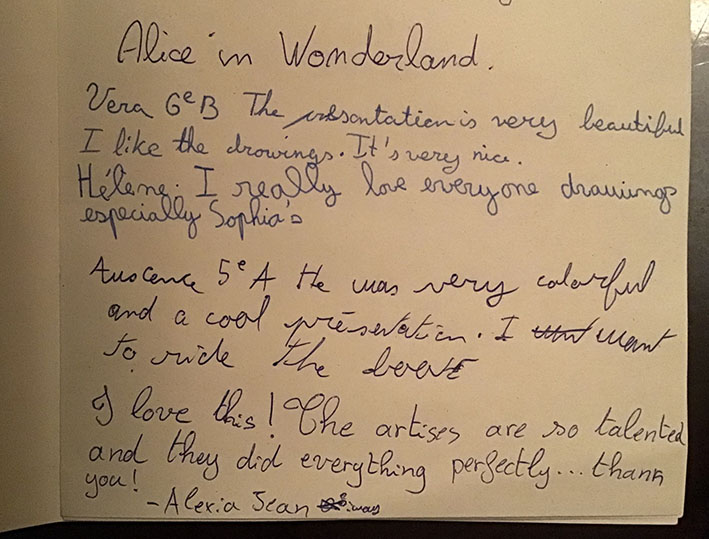 Alice in Wonderland.
Vera 6eB The présentation is very beautiful
I like the drowings. It's very nice.
Hélène. I really love everyone drawings
especially Sophia's
5e A He was very colorful
and a cool présentation. I want
to ride the
I love this! The artises are so talented
and they did everything perfectly... thank
you!
-Alexia Jean